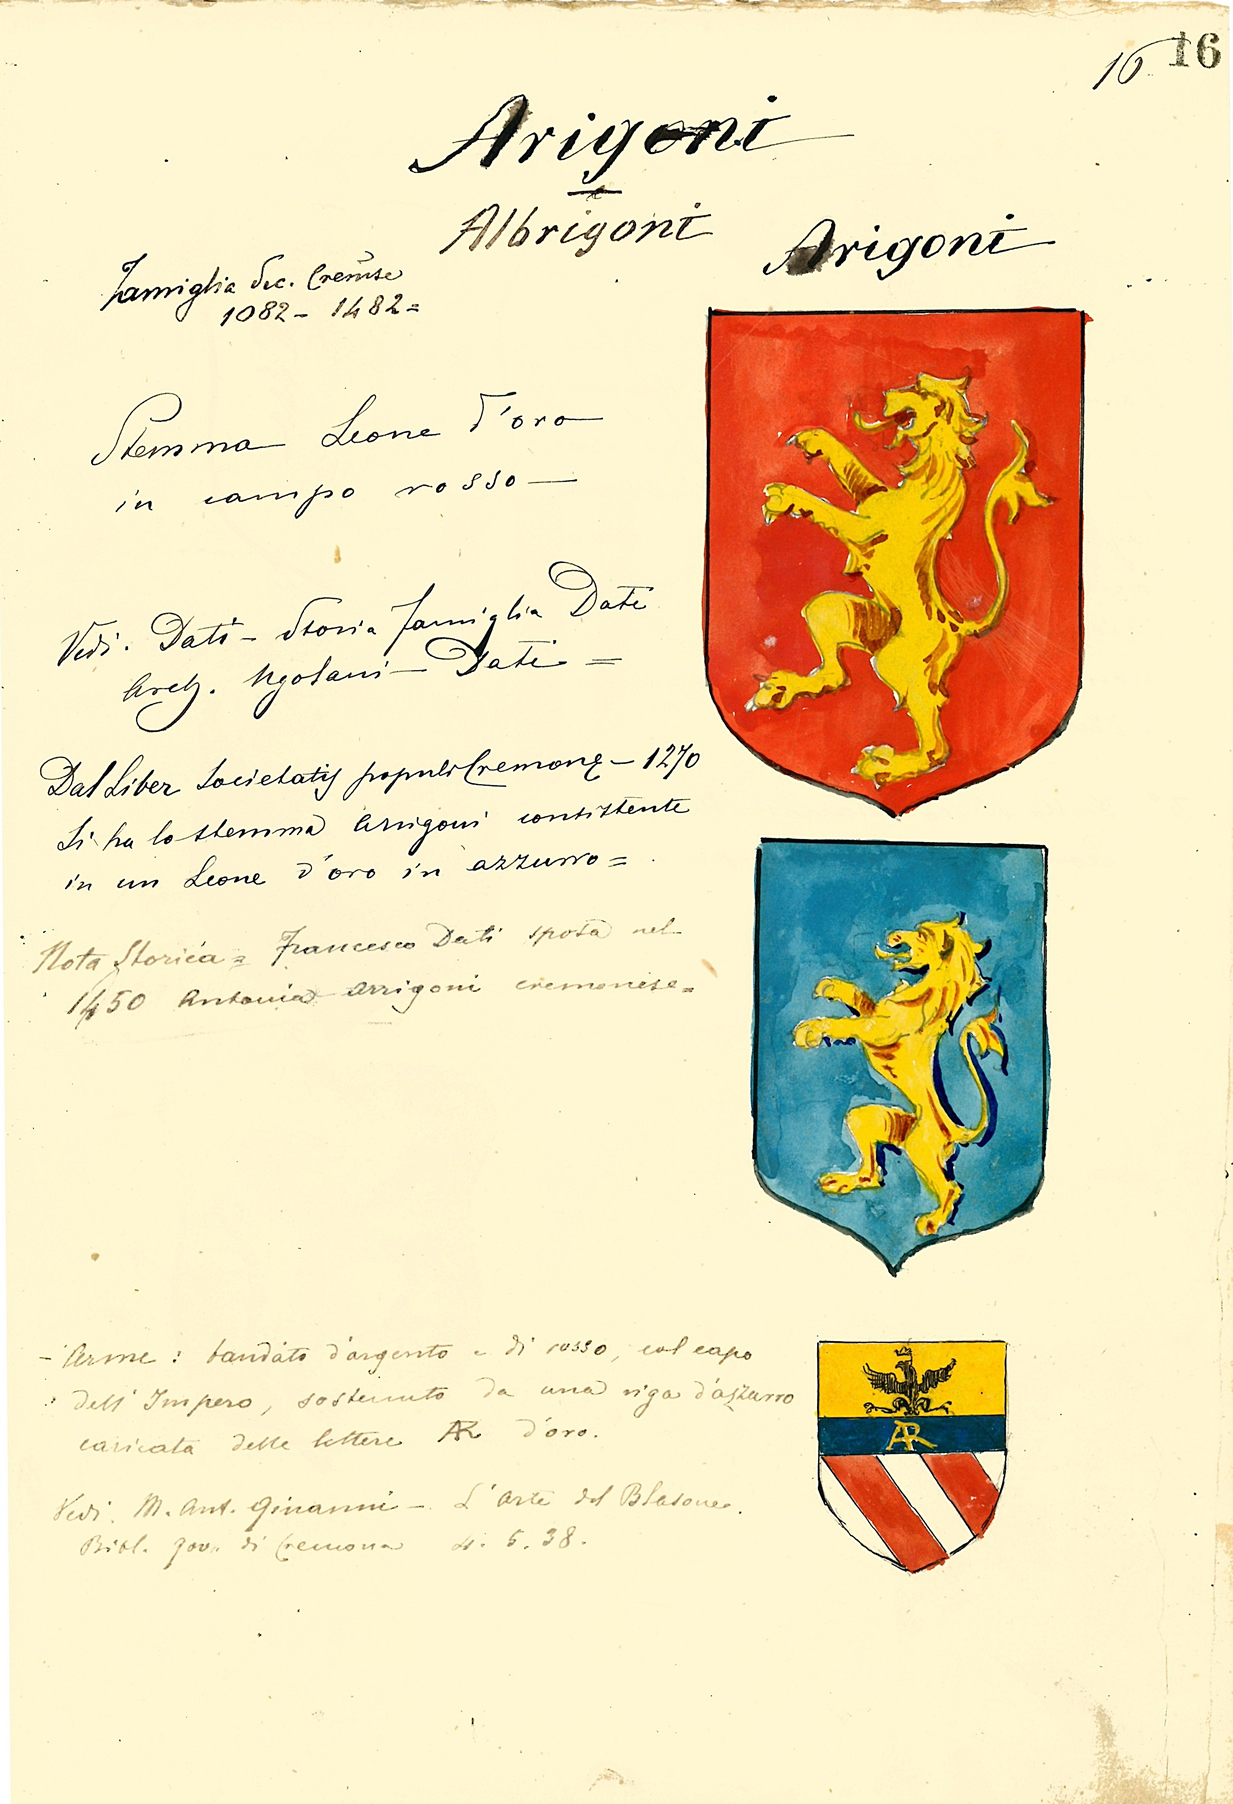 16 16
Arigoni
Albrigoni
Arigoni
Famiglia Dec. Cremse
1082 - 1482 =
Stemma Leone d'oro
in campo rosso —
Vedi. Dati - Storia famiglia Dati
Arch. Ugolani - Dati =
Dal Liber Societatis populi Cremonę - 1270
Si ha lo stemma Arrigoni consistente
in un Leone d'oro in azzurro =
Nota Storica = Francesco Dati sposa nel
1450 Antonia Arrigoni cremonese =
- Arme : bandato d'argento e di rosso, col capo
dell' Impero, sostenuto da una riga d'azzurro
caricata delle lettere AR d'oro.
Vedi. M. Ant. Ginanni - L'Arte del Blasone.
Bibl. gov. di Cremona 4. 5. 38.
AR